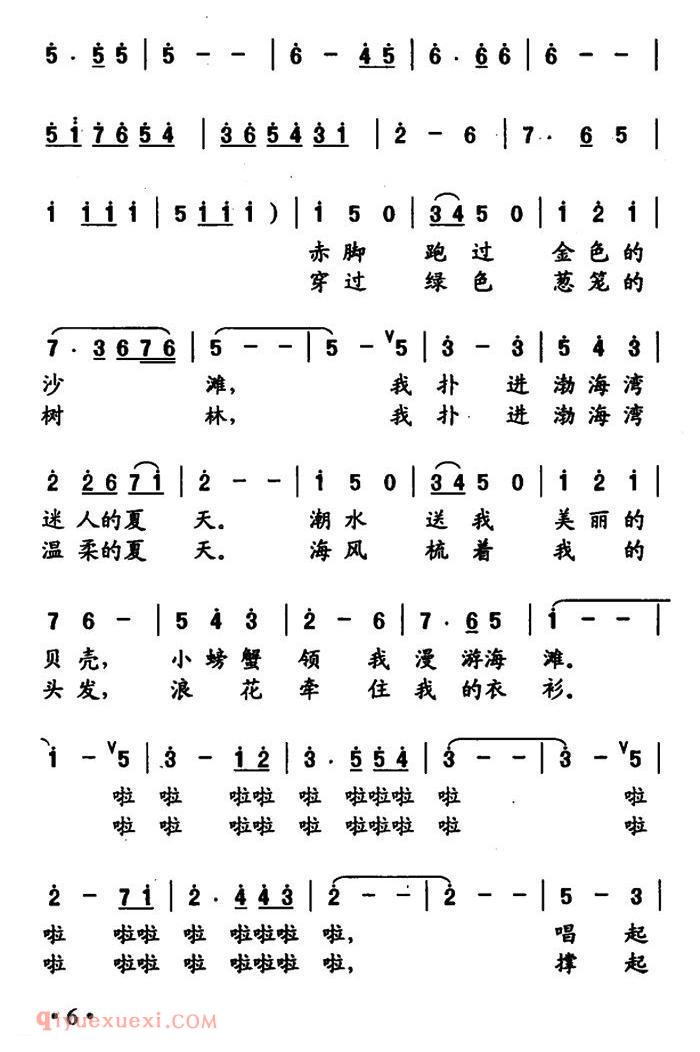 5 . 5 5 | 5 - - | 6 - 4 5 | 6 . 6 6 | 6 - - |
5 1 7 6 5 4 | 3 6 5 4 3 1 | 2 - 6 | 7 . 6 5 |
1 1 1 1 | 5 1 1 1 ) | 1 5 0 | 3 4 5 0 | 1 2 1 |
赤脚 跑过 金色的
穿过 绿色 葱笼的
7 . 3 6 7 6 | 5 - - | 5 - ∨5 | 3 - 3 | 5 4 3 |
沙 滩, 我 扑 进 渤海湾
树 林, 我 扑 进 渤海湾
2 2 6 7 1 | 2 - - | 1 5 0 | 3 4 5 0 | 1 2 1 |
迷 人的夏 天。 潮水 送我 美丽的
温 柔的夏 天。 海风 梳着 我 的
7 6 - | 5 4 3 | 2 - 6 | 7 . 6 5 | 1 - - |
贝 壳, 小 螃 蟹 领 我 漫 游海 滩。
头 发, 浪 花 牵 住 我 的衣 衫。
1 - ∨5 | 3 - 1 2 | 3 . 5 5 4 | 3 - - | 3 - ∨5 |
啦 啦 啦啦 啦 啦啦啦 啦 啦
啦 啦 啦啦 啦 啦啦啦 啦 啦
2 - 7 1 | 2 . 4 4 3 | 2 - - | 2 - - | 5 - 3 |
啦 啦啦 啦 啦啦啦 啦, 唱 起
啦 啦啦 啦 啦啦啦 啦, 撑 起
· 6 ·
qiyuexuexi.com